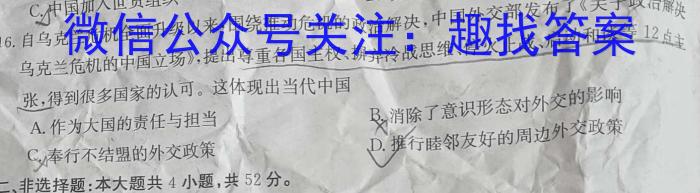 C.中国加入世贸组织
16.自乌克兰危机全面升级以来,围绕推动危机的政治解决,中国外交部发布了《关于政治解决
微信公众号关注:趣找答案
乌克兰危机的中国立场》,提出尊重各国主权、摒弃冷战思维、12点主
张,得到很多国家的认可。这体现出当代中国
A.作为大国的责任与担当
B.消除了意识形态对外交的影响
C.奉行不结盟的外交政策
D.推行睦邻友好的周边外交政策
二、非选择题:本大题共4小题,共52分。